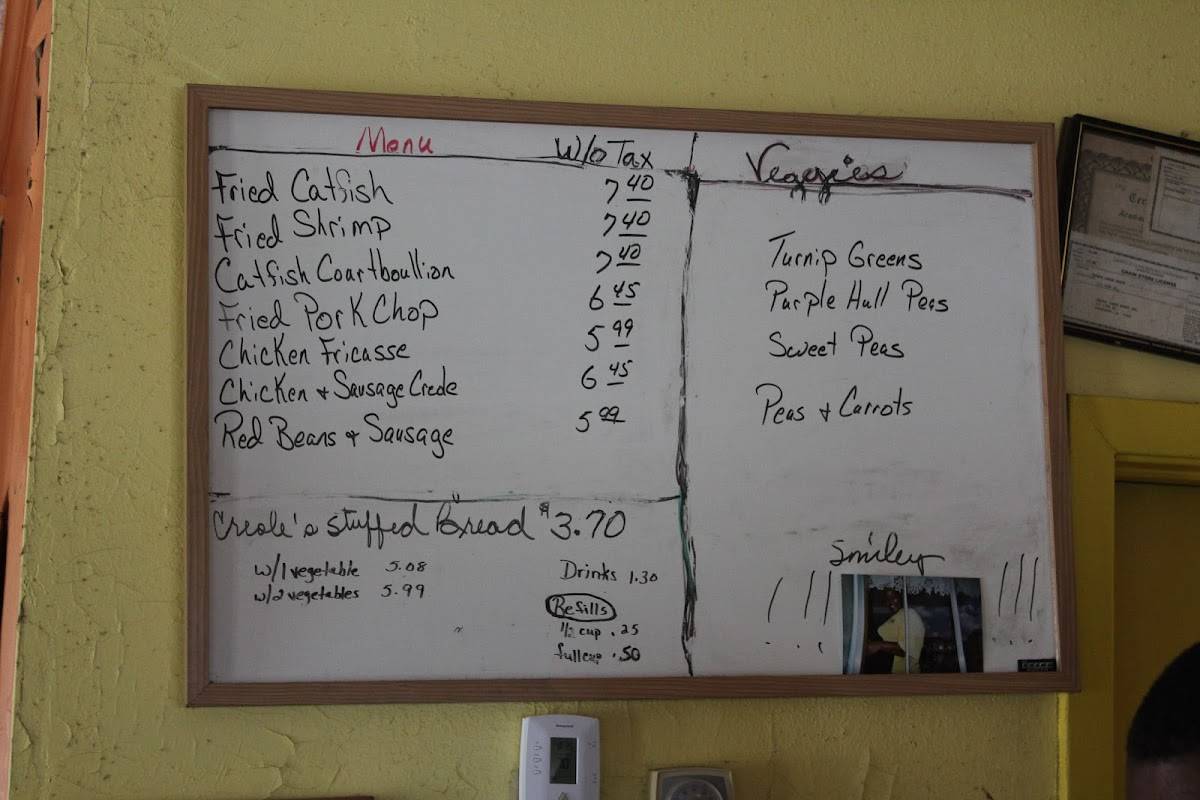 Menu W/o Tax
Fried Catfish 7 40
Fried Shrimp 7 40
Catfish Courtboullion 7 40
Fried Pork Chop 6 45
Chicken Fricasse 5 99
Chicken + Sausage Creole 6 45
Red Beans + Sausage 5 99
Creole's stuffed Bread $3.70
w/1 vegetable 5.08
w/2 vegetables 5.99
Drinks 1.30
Refills
1/2 cup .25
full cup .50
Veggies
Turnip Greens
Purple Hull Peas
Sweet Peas
Peas + Carrots
Smiley
!!! !!!
CHAIN STORE LICENSE
Honeywell